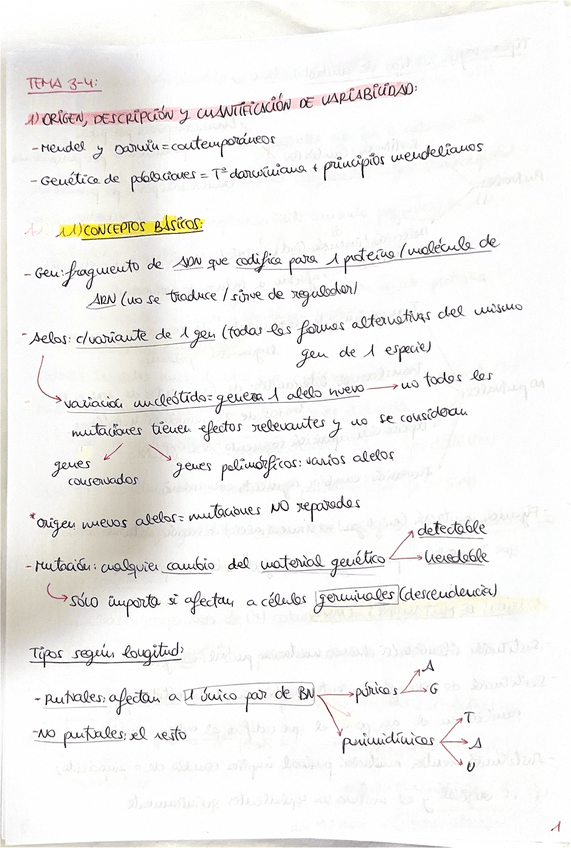 TEMA 3-4:
1) ORIGEN, DESCRIPCIÓN Y CUANTIFICACIÓN DE VARIABILIDAD:
- Mendel y Darwin = contemporáneos
- Genética de poblaciones = Tª darwiniana + principios mendelianos
1.1) CONCEPTOS BÁSICOS:
- Gen: fragmento de ADN que codifica para 1 proteína / molécula de
ARN (no se traduce / sirve de regulador)
- Alelos: c/variante de 1 gen (todas las formas alternativas del mismo
gen de 1 especie)
variación nucleótidos = genera 1 alelo nuevo → no todas las
mutaciones tienen efectos relevantes y no se consideran
genes conservados
genes polimórficos: varios alelos
*origen nuevos alelos = mutaciones NO reparadas
- Mutación: cualquier cambio del material genético
detectable
heredable
→ sólo importa si afectan a células germinales (descendencia)
Tipos según longitud:
- Puntuales: afectan a 1 único par de BN → púricos
A
G
pirimidínicos
T
A
U
- NO puntuales: el resto
1